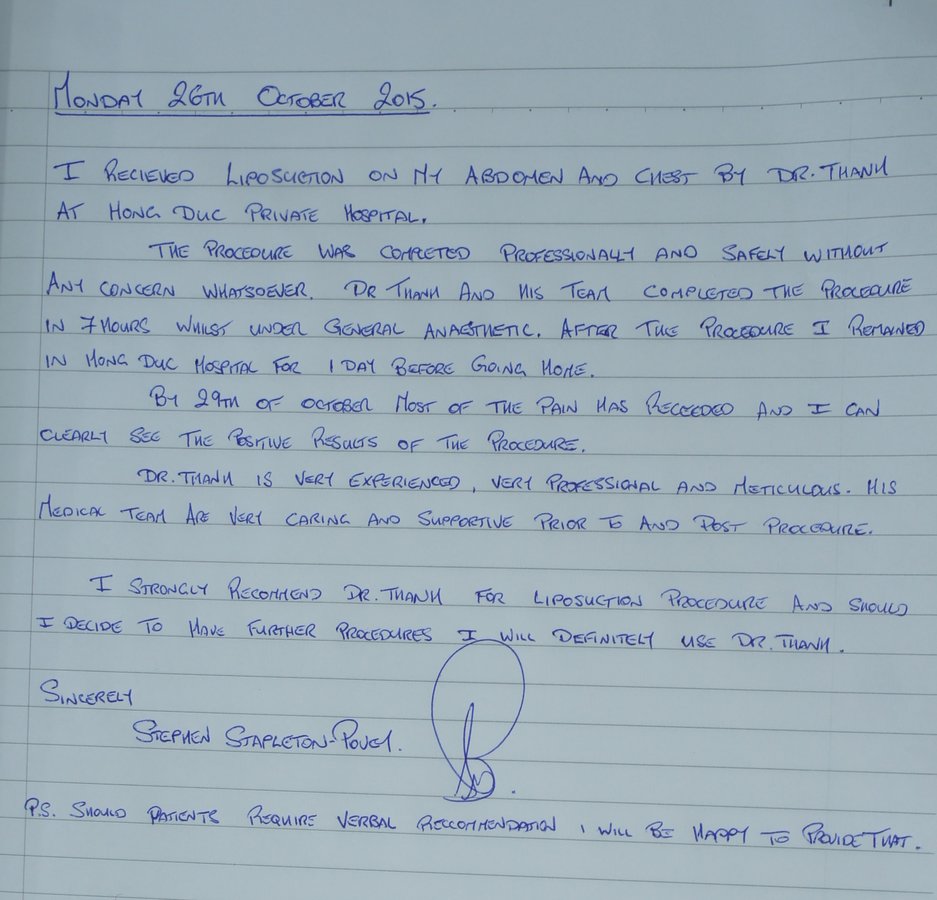 MONDAY 26TH OCTOBER 2015.
I RECIEVED LIPOSUCTION ON MY ABDOMEN AND CHEST BY DR. THANH
AT HONG DUC PRIVATE HOSPITAL.
THE PROCEDURE WAS COMPLETED PROFESSIONALLY AND SAFELY WITHOUT
ANY CONCERN WHATSOEVER. DR THANH AND HIS TEAM COMPLETED THE PROCEDURE
IN 7 HOURS WHILST UNDER GENERAL ANAESTHETIC. AFTER THE PROCEDURE I REMAINED
IN HONG DUC HOSPITAL FOR 1 DAY BEFORE GOING HOME.
BY 29TH OF OCTOBER MOST OF THE PAIN HAS RECEEDED AND I CAN
CLEARLY SEE THE POSITIVE RESULTS OF THE PROCEDURE.
DR. THANH IS VERY EXPERIENCED, VERY PROFESSIONAL AND METICULOUS. HIS
MEDICAL TEAM ARE VERY CARING AND SUPPORTIVE PRIOR TO AND POST PROCEDURE.
I STRONGLY RECOMMEND DR. THANH FOR LIPOSUCTION PROCEDURE AND SHOULD
I DECIDE TO HAVE FURTHER PROCEDURES I WILL DEFINITELY USE DR. THANH.
SINCERELY
STEPHEN STAPLETON-
P.S. SHOULD PATIENTS REQUIRE VERBAL RECCOMMENDATION I WILL BE HAPPY TO PROVIDE THAT.